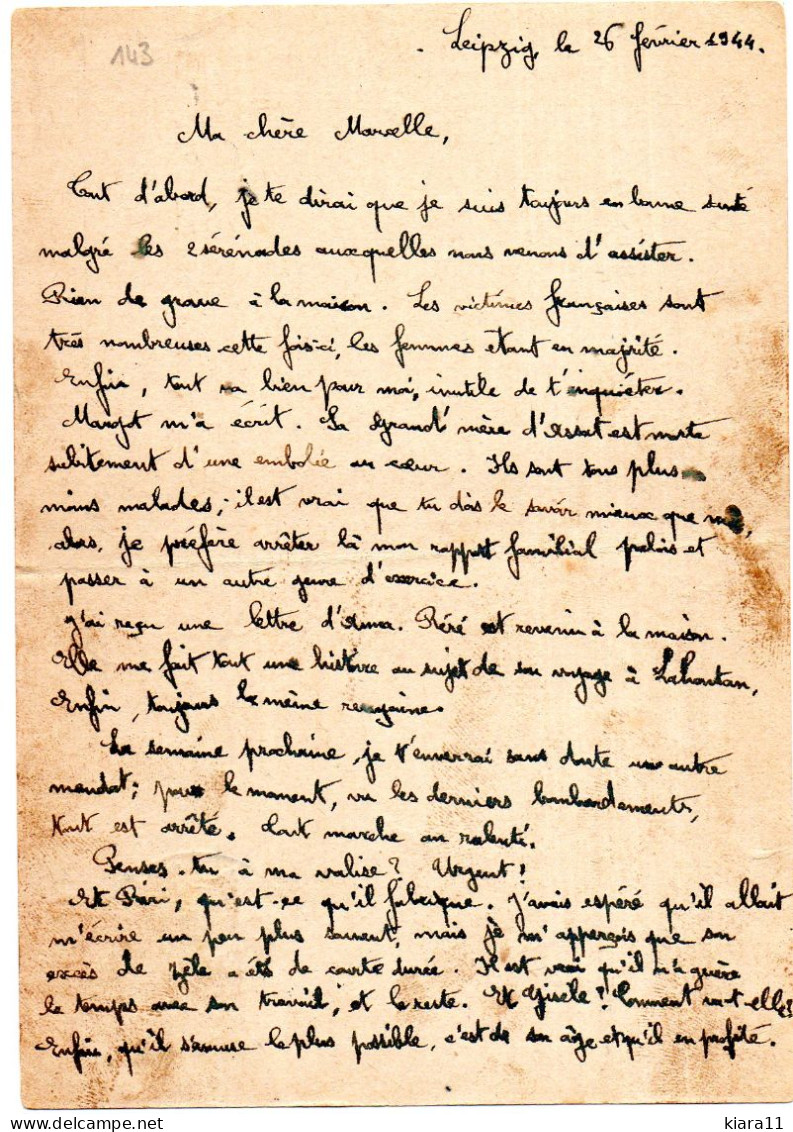 143
Leipzig, le 26 février 1944.
Ma chère Marcelle,
Tout d'abord, je te dirai que je suis toujours en bonne santé
malgré les 2 sérénades auxquelles nous venons d'assister.
Rien de grave à la maison. Les victimes françaises sont
très nombreuses cette fois-ci, les femmes étant en majorité.
Enfin, tout va bien pour moi, inutile de t'inquiéter.
Margot m'a écrit. La Grand'mère d'Assat est morte
subitement d'une embolie au cœur. Ils sont tous plus
moins malades; il est vrai que tu dois le savoir mieux que moi,
alors, je préfère arrêter là mon rapport familial palois et
passer à un autre genre d'exercice.
J'ai reçu une lettre d'Ama. Réré est revenu à la maison.
Elle me fait tout une histoire au sujet de son voyage à Lahontan,
Enfin, toujours la même rengaine.
La semaine prochaine, je t'enverrai sans doute un autre
mandat; pour le moment, vu les derniers bombardements,
tout est arrêté. Tout marche au ralenti.
Penses-tu à ma valise? Urgent!
Et Riri, qu'est-ce qu'il fabrique. J'avais espéré qu'il allait
m'écrire un peu plus souvent, mais je m'apperçois que son
excès de zèle a été de courte durée. Il est vrai qu'il n'a guère
le temps avec son travail, et le reste. Et Gisèle? Comment va-t-elle?
Enfin, qu'il s'amuse le plus possible, c'est de son âge et qu'il en profite.
kiara11